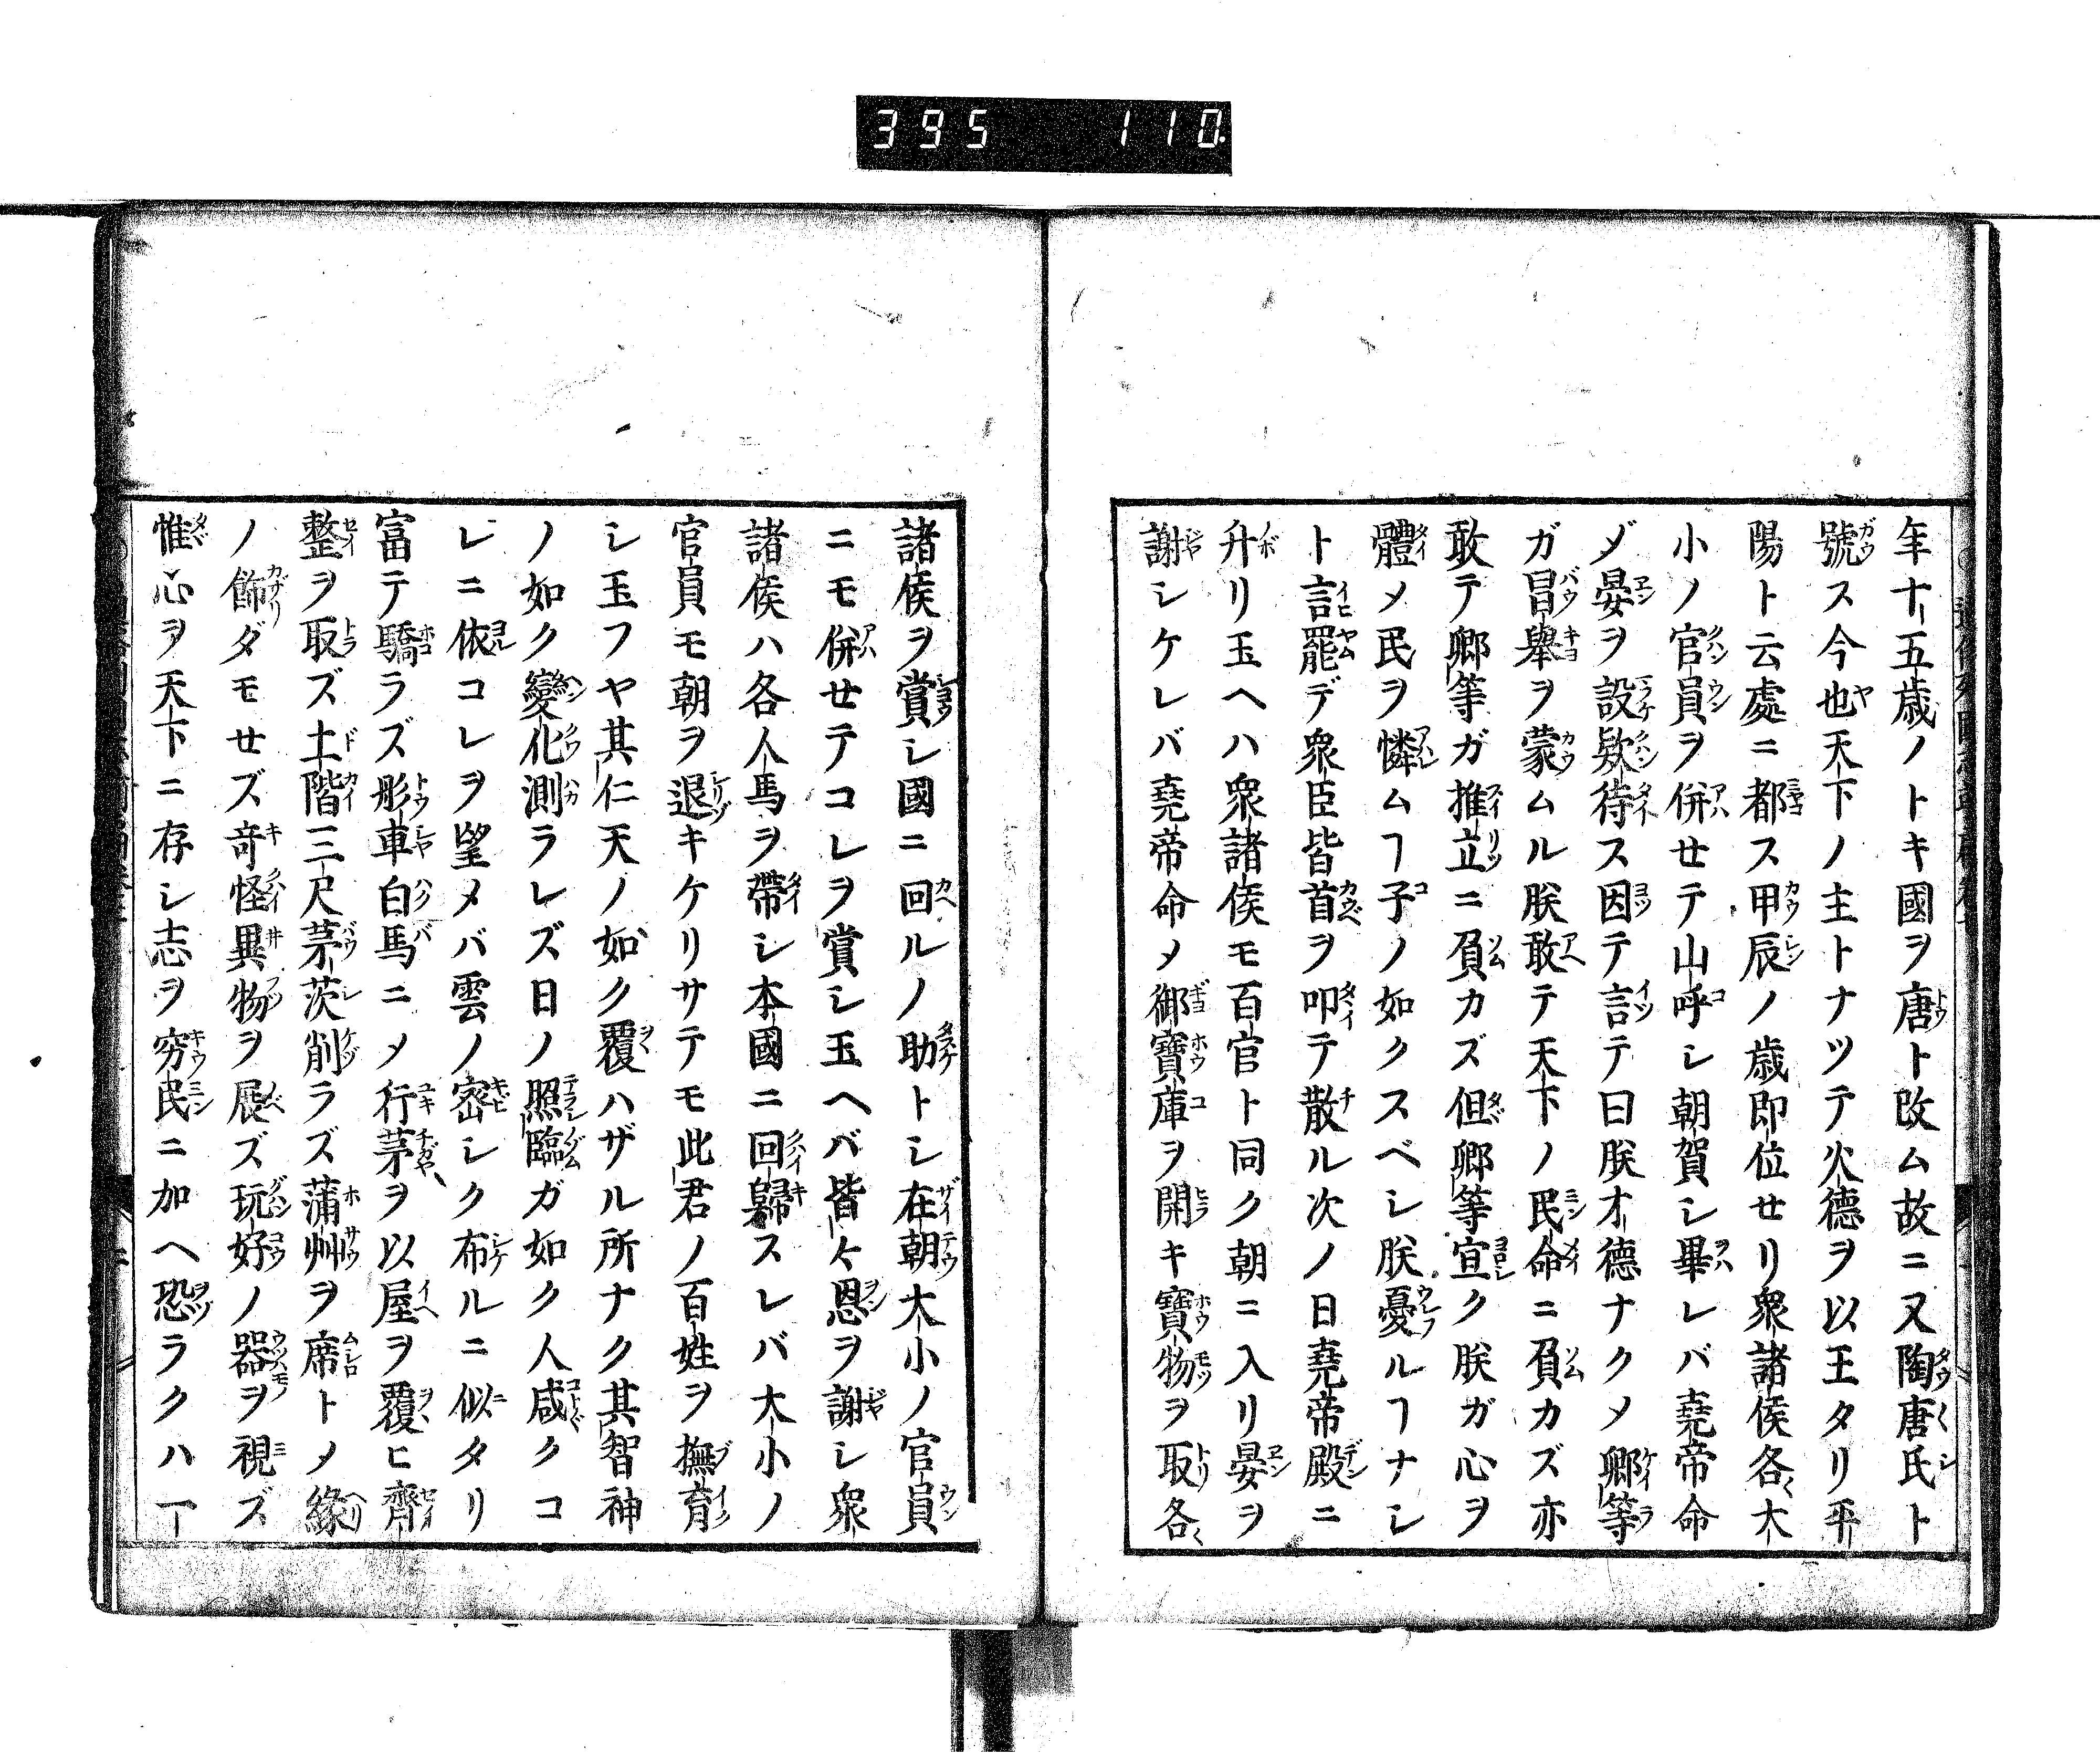 395 110
年十五歳ノトキ國ヲ唐ト改ム故ニ又陶唐氏ト
號ス今也天下ノ主トナツテ火德ヲ以王タリ平
陽ト云處ニ都ス甲辰ノ歳即位セリ衆諸侯各〻大
小ノ官員ヲ併セテ山呼シ朝賀シ畢レバ堯帝命
ノ晏ヲ設欵待ス因テ言テ曰朕才德ナクメ卿等
ガ冒舉ヲ蒙ムル朕敢テ天下ノ民命ニ負カズ亦
敢テ卿等ガ推立ニ負カズ但卿等宜ク朕ガ心ヲ
體メ民ヲ憐ムヿ子ノ如クスベシ朕憂ルヿナシ
ト言罷デ衆臣皆首ヲ叩テ散ル次ノ日堯帝殿ニ
升リ玉ヘハ衆諸侯モ百官ト同ク朝ニ入リ晏ヲ
謝シケレバ堯帝命メ御寶庫ヲ開キ寶物ヲ取各〻
諸侯ヲ賞シ國ニ回ルノ助トシ在朝大小ノ官員
ニモ併セテコレヲ賞シ玉ヘバ皆〻恩ヲ謝シ衆
諸侯ハ各人馬ヲ帶シ本國ニ回歸スレバ大小ノ
官員モ朝ヲ退キケリサテモ此君ノ百姓ヲ撫育
シ玉フヤ其仁天ノ如ク覆ハザル所ナク其智神
ノ如ク變化測ラレズ日ノ照臨ガ如ク人咸クコ
レニ依コレヲ望メバ雲ノ密シク布ルニ似タリ
富テ驕ラズ彤車白馬ニメ行茅ヲ以屋ヲ覆ヒ齊
整ヲ取ズ土階三尺茅茨削ラズ蒲艸ヲ席トメ緣
ノ飾ダモセズ竒怪異物ヲ展ズ玩好ノ器ヲ視ズ
惟心ヲ天下ニ存シ志ヲ窮民ニ加ヘ恐ラクハ一